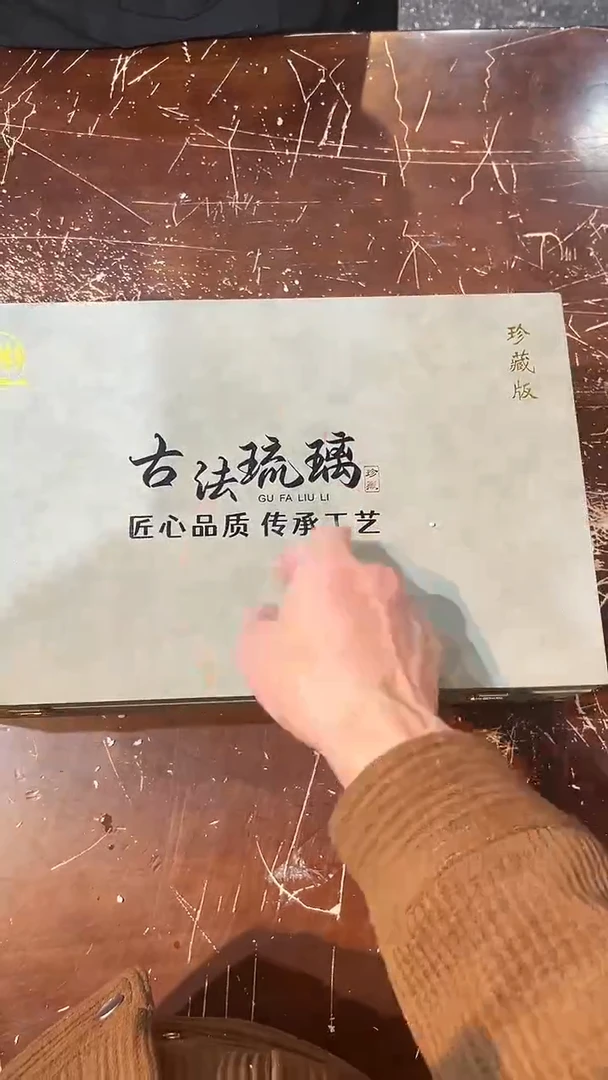 珍藏版
古法琉璃
珍藏
GU FA LIU LI
匠心品质 传承工艺